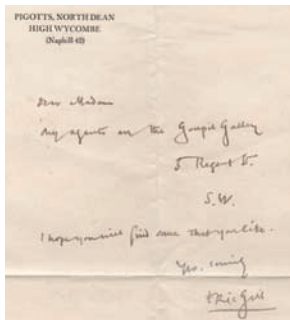 PIGOTTS, NORTH DEAN
HIGH WYCOMBE
(Naphill 42)
Dear Madam
My agents are the Goupil Gallery
5 Regent St.
S.W.
I hope you will find some that you like.
Yrs. truly
Eric Gill